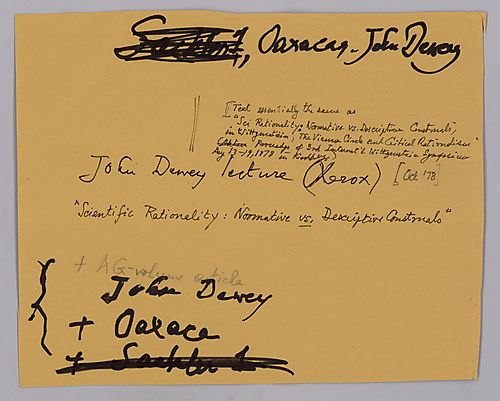 Sackler 1, Oaxacan, John Dewey
[Text essentially the same as
"Sci Rationality: Normative vs. Descriptive Construals,
in Wittgenstein, The Vienna Circle and Critical Rationalism"
Proceedgs of 3rd Internat'l Wittgenstein Symposium
Aug 13-19, 1978 in Kirchberg]
John Dewey lecture (Xerox) [Oct '78]
"Scientific Rationality: Normative vs. Descriptive Construals"
+ AG-volume article
John Dewey
+ Oaxaca
+ Sackler 1